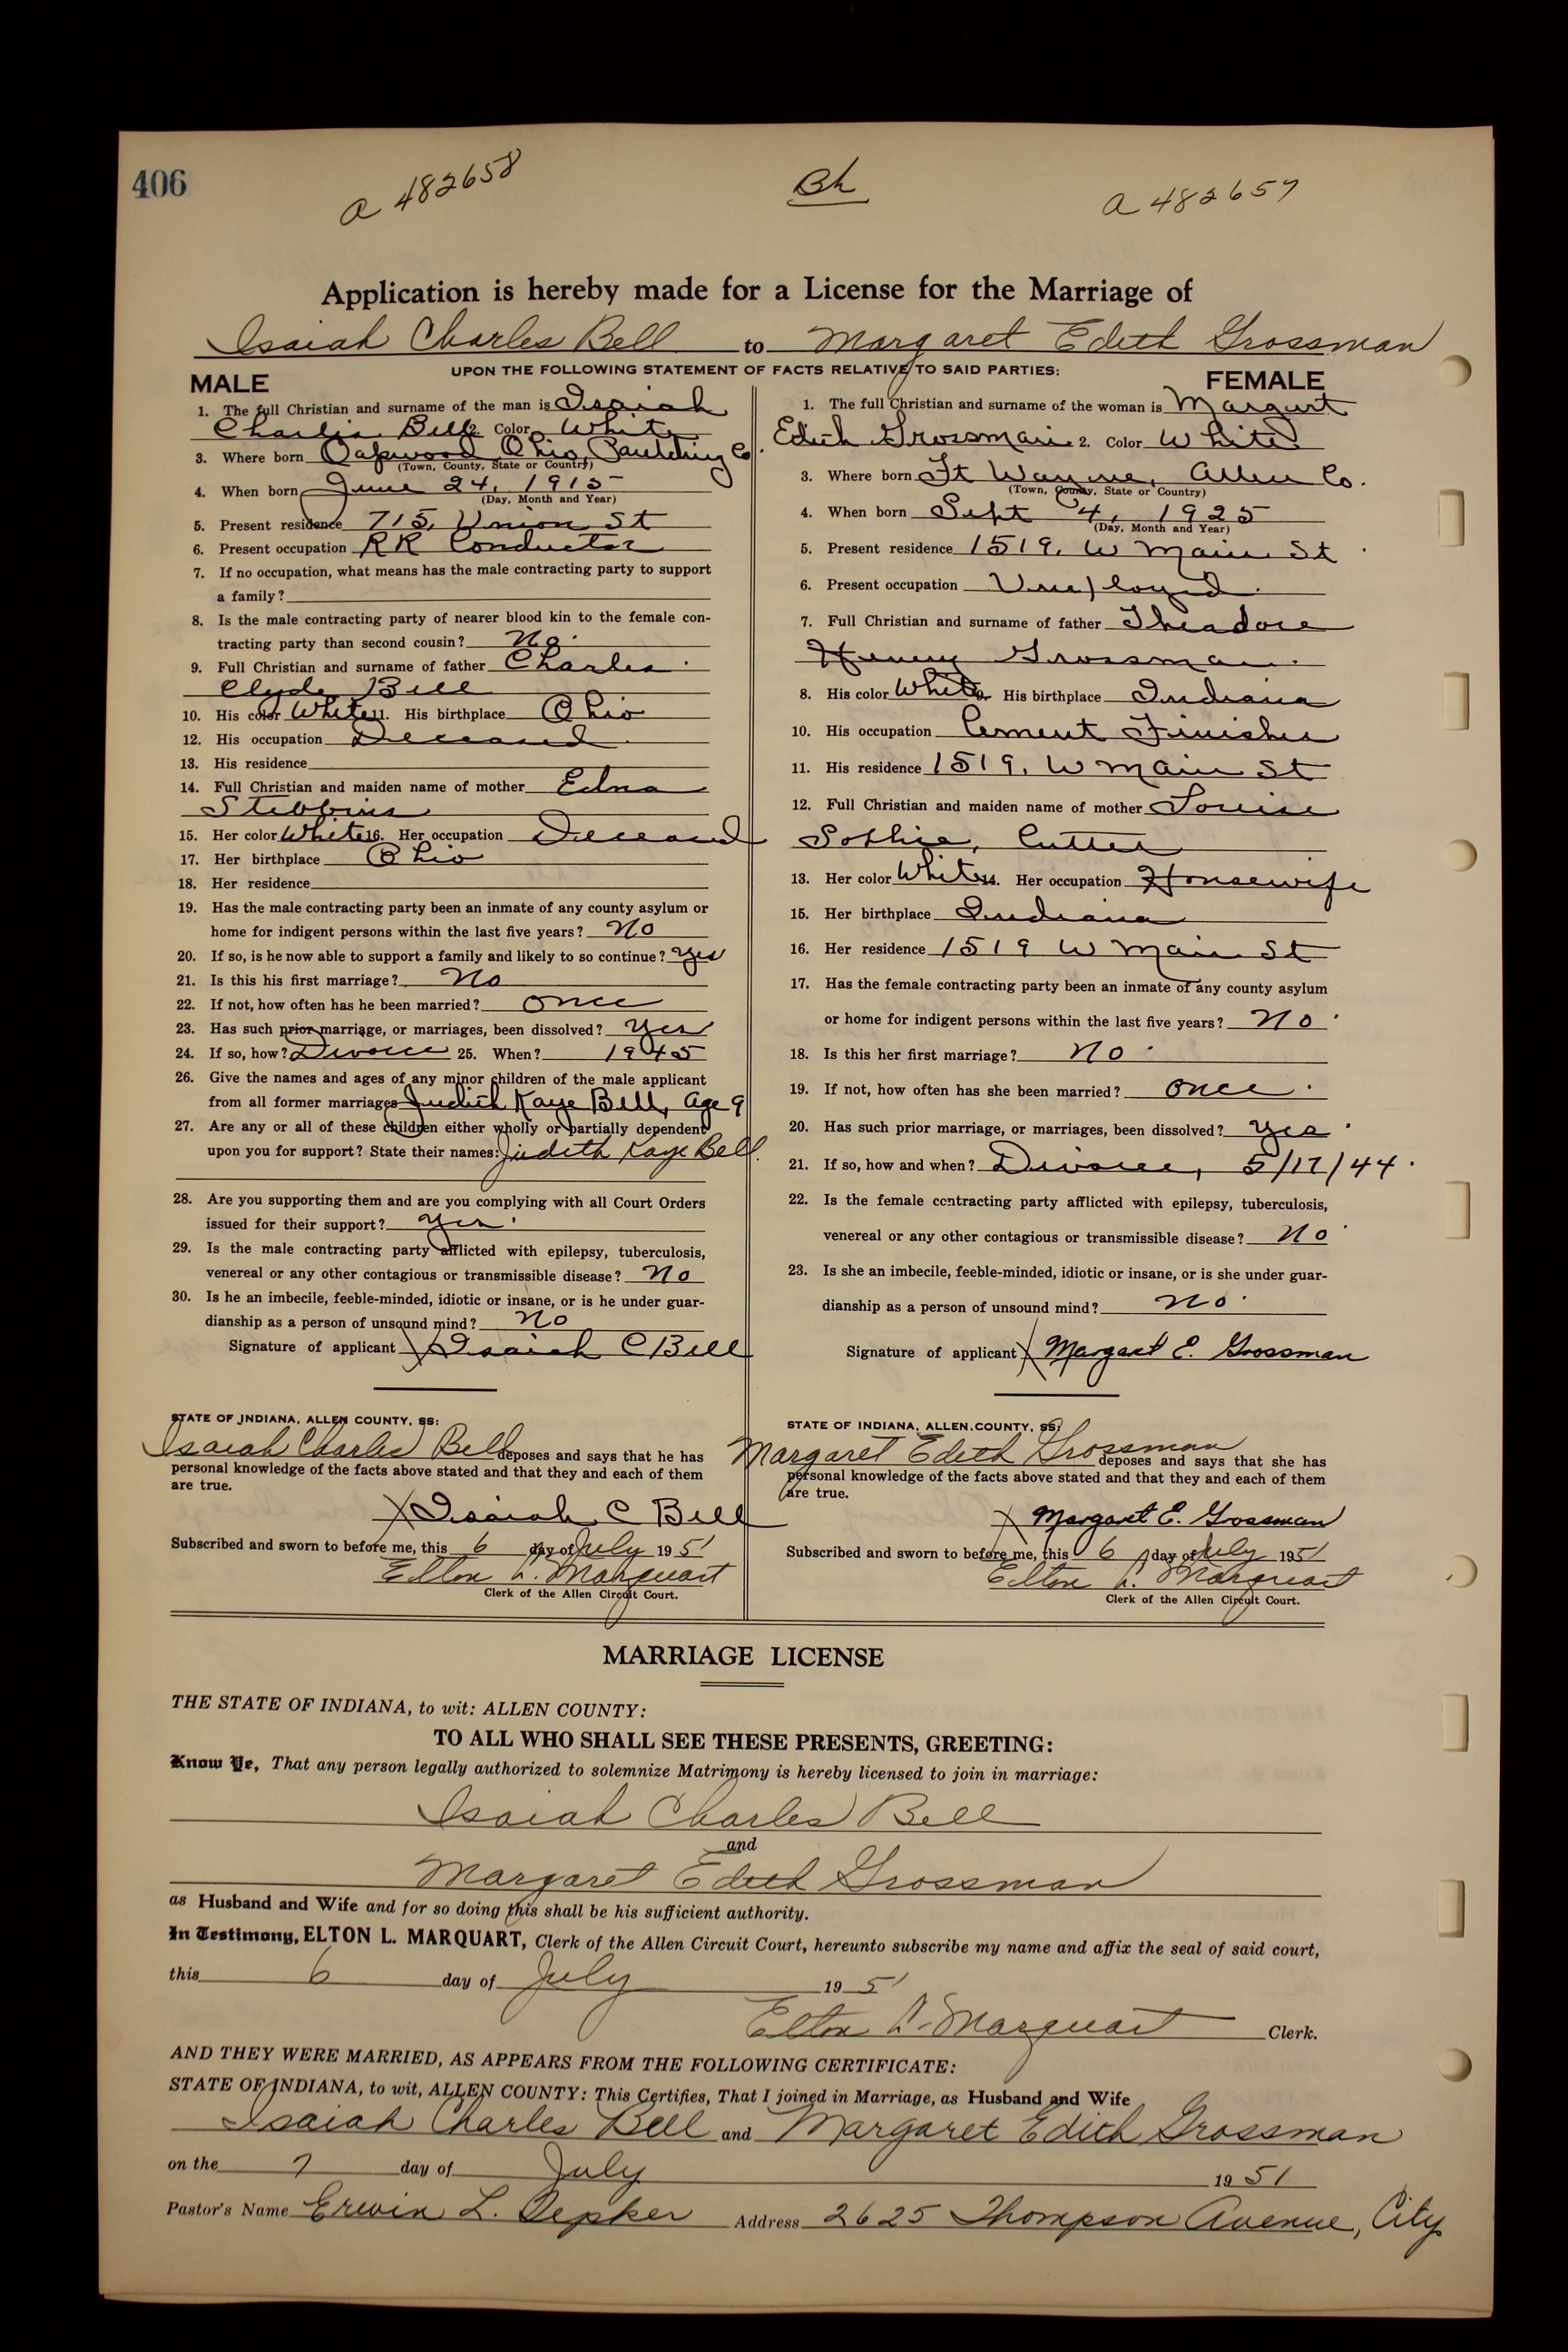 406
a 482658
Bh
a 482657
Application is hereby made for a License for the Marriage of
Isaiah Charles Bell to Margaret Edith Grossman
UPON THE FOLLOWING STATEMENT OF FACTS RELATIVE TO SAID PARTIES:
MALE
1. The full Christian and surname of the man is Isaiah
Charles Bell 2. Color White
3. Where born Oakwood Ohio, Paulding Co.
(Town, County, State or Country)
4. When born June 24, 1915
(Day, Month and Year)
5. Present residence 715, Union St
6. Present occupation RR Conductor
7. If no occupation, what means has the male contracting party to support
a family?
8. Is the male contracting party of nearer blood kin to the female con-
tracting party than second cousin? No.
9. Full Christian and surname of father Charles
Clyde Bell
10. His color White 11. His birthplace Ohio
12. His occupation Deceased
13. His residence
14. Full Christian and maiden name of mother Edna
Stebbins
15. Her color White 16. Her occupation Deceased
17. Her birthplace Ohio
18. Her residence
19. Has the male contracting party been an inmate of any county asylum or
home for indigent persons within the last five years? No
20. If so, is he now able to support a family and likely to so continue? Yes
21. Is this his first marriage? No
22. If not, how often has he been married? Once
23. Has such prior marriage, or marriages, been dissolved? Yes
24. If so, how? Divorce 25. When? 1945
26. Give the names and ages of any minor children of the male applicant
from all former marriages Judith Kaye Bell, Age 9
27. Are any or all of these children either wholly or partially dependent
upon you for support? State their names: Judith Kaye Bell.
28. Are you supporting them and are you complying with all Court Orders
issued for their support? Yes.
29. Is the male contracting party afflicted with epilepsy, tuberculosis,
venereal or any other contagious or transmissible disease? No
30. Is he an imbecile, feeble-minded, idiotic or insane, or is he under guar-
dianship as a person of unsound mind? No
Signature of applicant X Isaiah C Bell
STATE OF INDIANA, ALLEN COUNTY, SS:
Isaiah Charles Bell deposes and says that he has
personal knowledge of the facts above stated and that they and each of them
are true.
X Isaiah C Bell
Subscribed and sworn to before me, this 6 day of July 1951
Elton L. Marquart
Clerk of the Allen Circuit Court.
FEMALE
1. The full Christian and surname of the woman is Margaret
Edith Grossman 2. Color White
3. Where born Ft Wayne, Allen Co.
(Town, County, State or Country)
4. When born Sept 4, 1925
(Day, Month and Year)
5. Present residence 1519, W Main St.
6. Present occupation Unemployed
7. Full Christian and surname of father Theadore
Henry Grossman.
8. His color White 9. His birthplace Indiana
10. His occupation Cement Finisher
11. His residence 1519, W Main St
12. Full Christian and maiden name of mother Louise
Sophie, Cutter
13. Her color White 14. Her occupation Housewife
15. Her birthplace Indiana
16. Her residence 1519 W Main St
17. Has the female contracting party been an inmate of any county asylum
or home for indigent persons within the last five years? No.
18. Is this her first marriage? No.
19. If not, how often has she been married? Once.
20. Has such prior marriage, or marriages, been dissolved? Yes.
21. If so, how and when? Divorce, 5/17/44.
22. Is the female contracting party afflicted with epilepsy, tuberculosis,
venereal or any other contagious or transmissible disease? No.
23. Is she an imbecile, feeble-minded, idiotic or insane, or is she under guar-
dianship as a person of unsound mind? No.
Signature of applicant X Margaret E. Grossman
STATE OF INDIANA, ALLEN COUNTY, SS:
Margaret Edith Grossman deposes and says that she has
personal knowledge of the facts above stated and that they and each of them
are true.
X Margaret E. Grossman
Subscribed and sworn to before me, this 6 day of July 1951
Elton L. Marquart
Clerk of the Allen Circuit Court.
MARRIAGE LICENSE
THE STATE OF INDIANA, to wit: ALLEN COUNTY:
TO ALL WHO SHALL SEE THESE PRESENTS, GREETING:
Know Ye, That any person legally authorized to solemnize Matrimony is hereby licensed to join in marriage:
Isaiah Charles Bell
and
Margaret Edith Grossman
as Husband and Wife and for so doing this shall be his sufficient authority.
In Testimony, ELTON L. MARQUART, Clerk of the Allen Circuit Court, hereunto subscribe my name and affix the seal of said court,
this 6 day of July 1951
Elton L. Marquart Clerk.
AND THEY WERE MARRIED, AS APPEARS FROM THE FOLLOWING CERTIFICATE:
STATE OF INDIANA, to wit, ALLEN COUNTY: This Certifies, That I joined in Marriage, as Husband and Wife
Isaiah Charles Bell and Margaret Edith Grossman
on the 7 day of July 1951
Pastor's Name Erwin L. Oepker Address 2625 Thompson Avenue, City